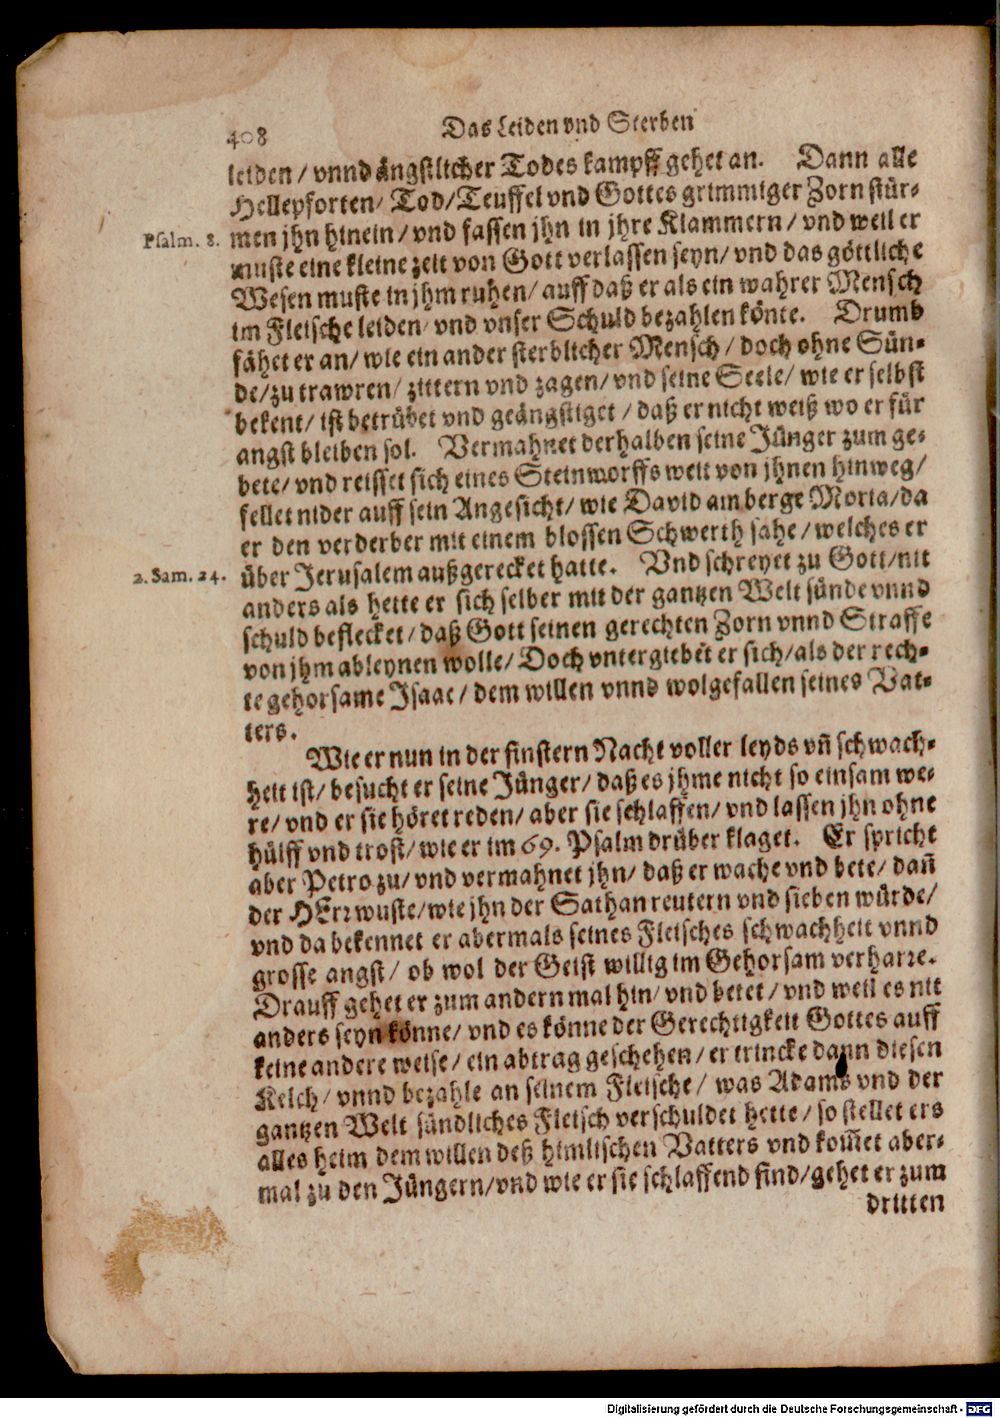 408
Das Leiden vnd Sterben
leiden / vnnd ängstlicher Todes kampff gehet an. Dann alle
Hellepforten/ Tod/Teuffel vnd Gottes grimmiger Zorn stür-
Psalm. 8. men jhn hinein / vnd fassen jhn in jhre Klammern / vnd weil er
muste eine kleine zeit von Gott verlassen seyn/ vnd das göttliche
Wesen muste in jhm ruhen/ auff daß er als ein wahrer Mensch
im Fleische leiden/ vnd vnser Schuld bezahlen könte. Drumb
fähet er an/ wie ein ander sterblicher Mensch / doch ohne Sün-
de/zu trawren/ zittern vnd zagen/ vnd seine Seele/ wie er selbst
bekent/ ist betrübet vnd geängstiget / daß er nicht weiß wo er für
angst bleiben sol. Vermahnet derhalben seine Jünger zum ge-
bete/ vnd reisset sich eines Steinworffs weit von jhnen hinweg/
fellet nider auff sein Angesicht/ wie David am berge Moria/da
er den verderber mit einem blossen Schwerth sahe / welches er
2. Sam. 24. über Jerusalem außgerecket hatte. Vnd schreyet zu Gott/nit
anders als hette er sich selber mit der gantzen Welt sünde vnnd
schuld beflecket / daß Gott seinen gerechten Zorn vnnd Straffe
von jhm ableynen wolle/ Doch vntergiebet er sich/als der rech-
te gehorsame Isaac / dem willen vnnd wolgefallen seines Vat-
ters.
Wie er nun in der finstern Nacht voller leyds vñ schwach-
heit ist/ besucht er seine Jünger/ daß es jhme nicht so einsam we-
re/ vnd er sie höret reden/ aber sie schlaffen/ vnd lassen jhn ohne
hülff vnd trost/ wie er im 69. Psalm drüber klaget. Er spricht
aber Petro zu/ vnd vermahnet jhn/ daß er wache vnd bete/ dañ
der HErr wuste/wie jhn der Sathan reutern vnd sieben würde/
vnd da bekennet er abermals seines Fleisches schwachheit vnnd
grosse angst/ ob wol der Geist willig im Gehorsam verharre.
Drauff gehet er zum andern mal hin/ vnd betet / vnd weil es nit
anders seyn könne/ vnd es könne der Gerechtigkeit Gottes auff
keine andere weise / ein abtrag geschehen/ er trincke dann diesen
Kelch/ vnnd bezahle an seinem Fleische/ was Adams vnd der
gantzen Welt sündliches Fleisch verschuldet hette/ so stellet ers
alles heim dem willen deß himlischen Vatters vnd kom̃et aber-
mal zu den Jüngern/vnd wie er sie schlaffend find/gehet er zum
dritten
Digitalisierung gefördert durch die Deutsche Forschungsgemeinschaft - DFG